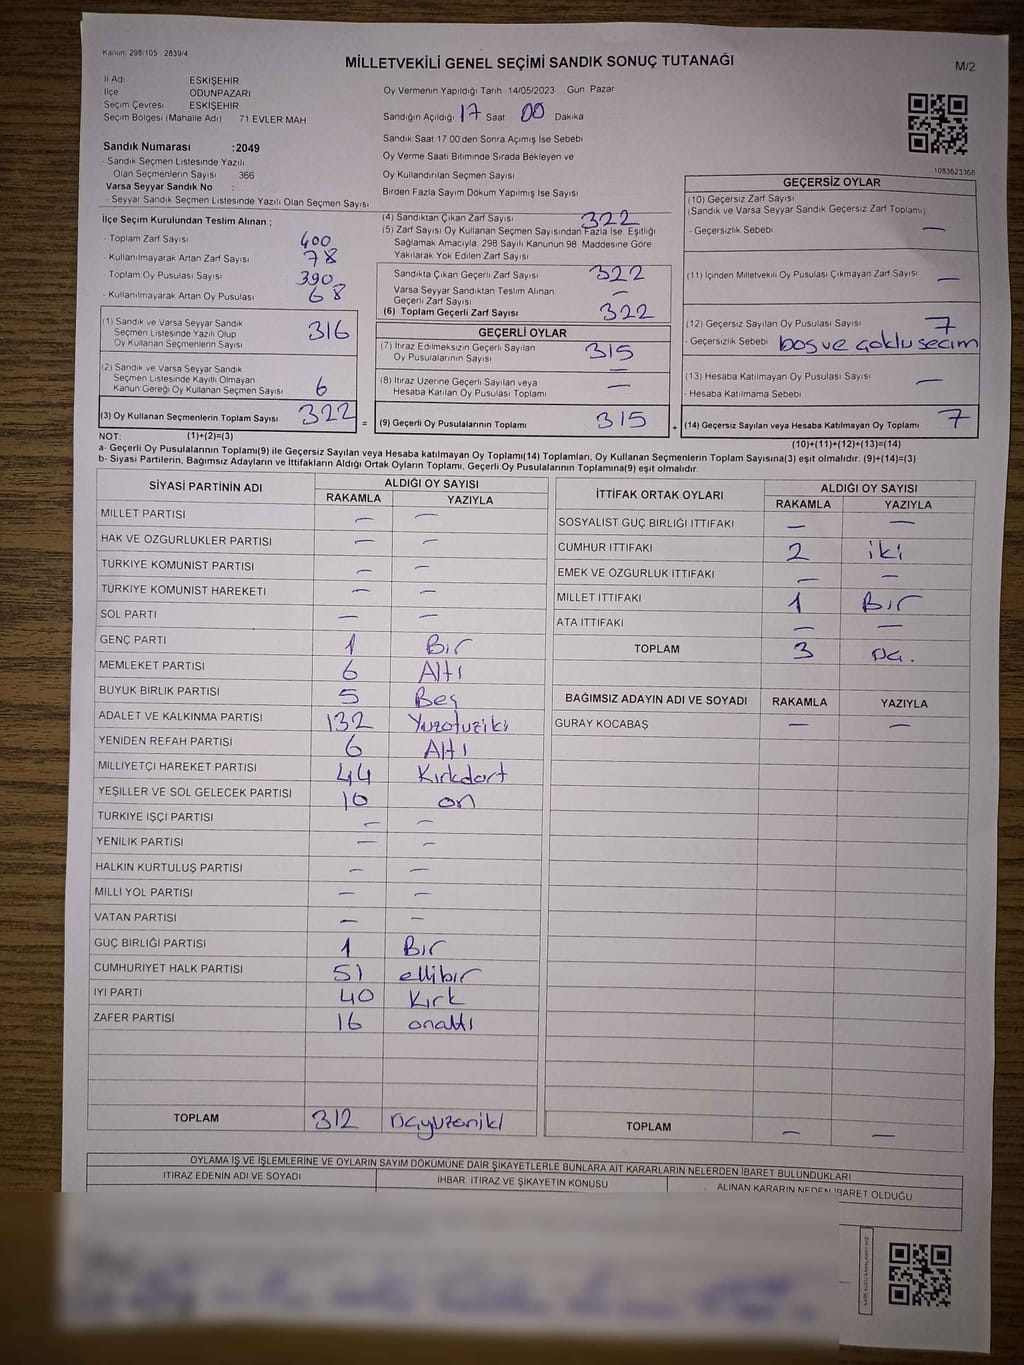 Kanun: 298/105 . 2839/4
MİLLETVEKİLİ GENEL SEÇİMİ SANDIK SONUÇ TUTANAĞI
M/2
İl Adı ESKİŞEHİR
İlçe ODUNPAZARI
Seçim Çevresi ESKİŞEHİR
Seçim Bölgesi (Mahalle Adı) 71 EVLER MAH
Oy Vermenin Yapıldığı Tarih 14/05/2023 Gün Pazar
Sandığın Açıldığı 17 Saat 00 Dakika
Sandık Saat 17 00'den Sonra Açımış İse Sebebi
Oy Verme Saati Bitiminde Sırada Bekleyen ve
Oy Kullandırılan Seçmen Sayısı
Birden Fazla Sayım Döküm Yapılmış İse Sayısı
1083623368
Sandık Numarası :2049
- Sandık Seçmen Listesinde Yazılı
Olan Seçmenlerin Sayısı 366
Varsa Seyyar Sandık No :
- Seyyar Sandık Seçmen Listesinde Yazılı Olan Seçmen Sayısı
İlçe Seçim Kurulundan Teslim Alınan ;
- Toplam Zarf Sayısı 400
- Kullanılmayarak Artan Zarf Sayısı 78
- Toplam Oy Pusulası Sayısı 390
- Kullanılmayarak Artan Oy Pusulası 68
(1) Sandık ve Varsa Seyyar Sandık
Seçmen Listesinde Yazılı Olup
Oy Kullanan Seçmenlerin Sayısı 316
(2) Sandık ve Varsa Seyyar Sandık
Seçmen Listesinde Kayıtlı Olmayan
Kanun Gereği Oy Kullanan Seçmen Sayısı 6
(3) Oy Kullanan Seçmenlerin Toplam Sayısı 322 =
(1)+(2)=(3)
(4) Sandıktan Çıkan Zarf Sayısı 322
(5) Zarf Sayısı Oy Kullanan Seçmen Sayısından Fazla İse, Eşitliği
Sağlamak Amacıyla, 298 Sayılı Kanunun 98. Maddesine Göre
Yakılarak Yok Edilen Zarf Sayısı
Sandıkta Çıkan Geçerli Zarf Sayısı 322
Varsa Seyyar Sandıktan Teslim Alınan
Geçerli Zarf Sayısı –
(6) Toplam Geçerli Zarf Sayısı 322
GEÇERLİ OYLAR
(7) İtiraz Edilmeksizin Geçerli Sayılan
Oy Pusulalarının Sayısı 315
(8) İtiraz Üzerine Geçerli Sayılan veya
Hesaba Katılan Oy Pusulası Toplamı –
(9) Geçerli Oy Pusulalarının Toplamı 315 +
GEÇERSİZ OYLAR
(10) Geçersiz Zarf Sayısı
(Sandık ve Varsa Seyyar Sandık Geçersiz Zarf Toplamı)
- Geçersizlik Sebebi –
(11) İçinden Milletvekili Oy Pusulası Çıkmayan Zarf Sayısı –
(12) Geçersiz Sayılan Oy Pusulası Sayısı 7
- Geçersizlik Sebebi boş ve çoklu seçim
(13) Hesaba Katılmayan Oy Pusulası Sayısı –
- Hesaba Katılmama Sebebi
(14) Geçersiz Sayılan veya Hesaba Katılmayan Oy Toplamı 7
(10)+(11)+(12)+(13)=(14)
NOT:
a- Geçerli Oy Pusulalarının Toplamı(9) ile Geçersiz Sayılan veya Hesaba katılmayan Oy Toplamı(14) Toplamları, Oy Kullanan Seçmenlerin Toplam Sayısına(3) eşit olmalıdır. (9)+(14)=(3)
b- Siyasi Partilerin, Bağımsız Adayların ve İttifakların Aldığı Ortak Oyların Toplamı, Geçerli Oy Pusulalarının Toplamına(9) eşit olmalıdır.
SİYASİ PARTİNİN ADI ALDIĞI OY SAYISI
RAKAMLA YAZIYLA
MİLLET PARTİSİ – –
HAK VE ÖZGÜRLÜKLER PARTİSİ – –
TÜRKİYE KOMÜNİST PARTİSİ – –
TÜRKİYE KOMÜNİST HAREKETİ – –
SOL PARTİ – –
GENÇ PARTİ 1 Bir
MEMLEKET PARTİSİ 6 Altı
BÜYÜK BİRLİK PARTİSİ 5 Beş
ADALET VE KALKINMA PARTİSİ 132 Yüzotuziki
YENİDEN REFAH PARTİSİ 6 Altı
MİLLİYETÇİ HAREKET PARTİSİ 44 Kırkdört
YEŞİLLER VE SOL GELECEK PARTİSİ 10 on
TÜRKİYE İŞÇİ PARTİSİ – –
YENİLİK PARTİSİ – –
HALKIN KURTULUŞ PARTİSİ – –
MİLLİ YOL PARTİSİ – –
VATAN PARTİSİ – –
GÜÇ BİRLİĞİ PARTİSİ 1 Bir
CUMHURİYET HALK PARTİSİ 51 ellibir
İYİ PARTİ 40 Kırk
ZAFER PARTİSİ 16 onaltı
TOPLAM 312 üçyüzoniki
İTTİFAK ORTAK OYLARI ALDIĞI OY SAYISI
RAKAMLA YAZIYLA
SOSYALİST GÜÇ BİRLİĞİ İTTİFAKI – –
CUMHUR İTTİFAKI 2 iki
EMEK VE ÖZGÜRLÜK İTTİFAKI – –
MİLLET İTTİFAKI 1 Bir
ATA İTTİFAKI – –
TOPLAM 3 üç.
BAĞIMSIZ ADAYIN ADI VE SOYADI RAKAMLA YAZIYLA
GÜRAY KOCABAŞ – –
TOPLAM – –
OYLAMA İŞ VE İŞLEMLERİNE VE OYLARIN SAYIM DÖKÜMÜNE DAİR ŞİKAYETLERLE BUNLARA AİT KARARLARIN NELERDEN İBARET BULUNDUKLARI
İTİRAZ EDENİN ADI VE SOYADI İHBAR, İTİRAZ VE ŞİKAYETİN KONUSU ALINAN KARARIN NEDEN İBARET OLDUĞU